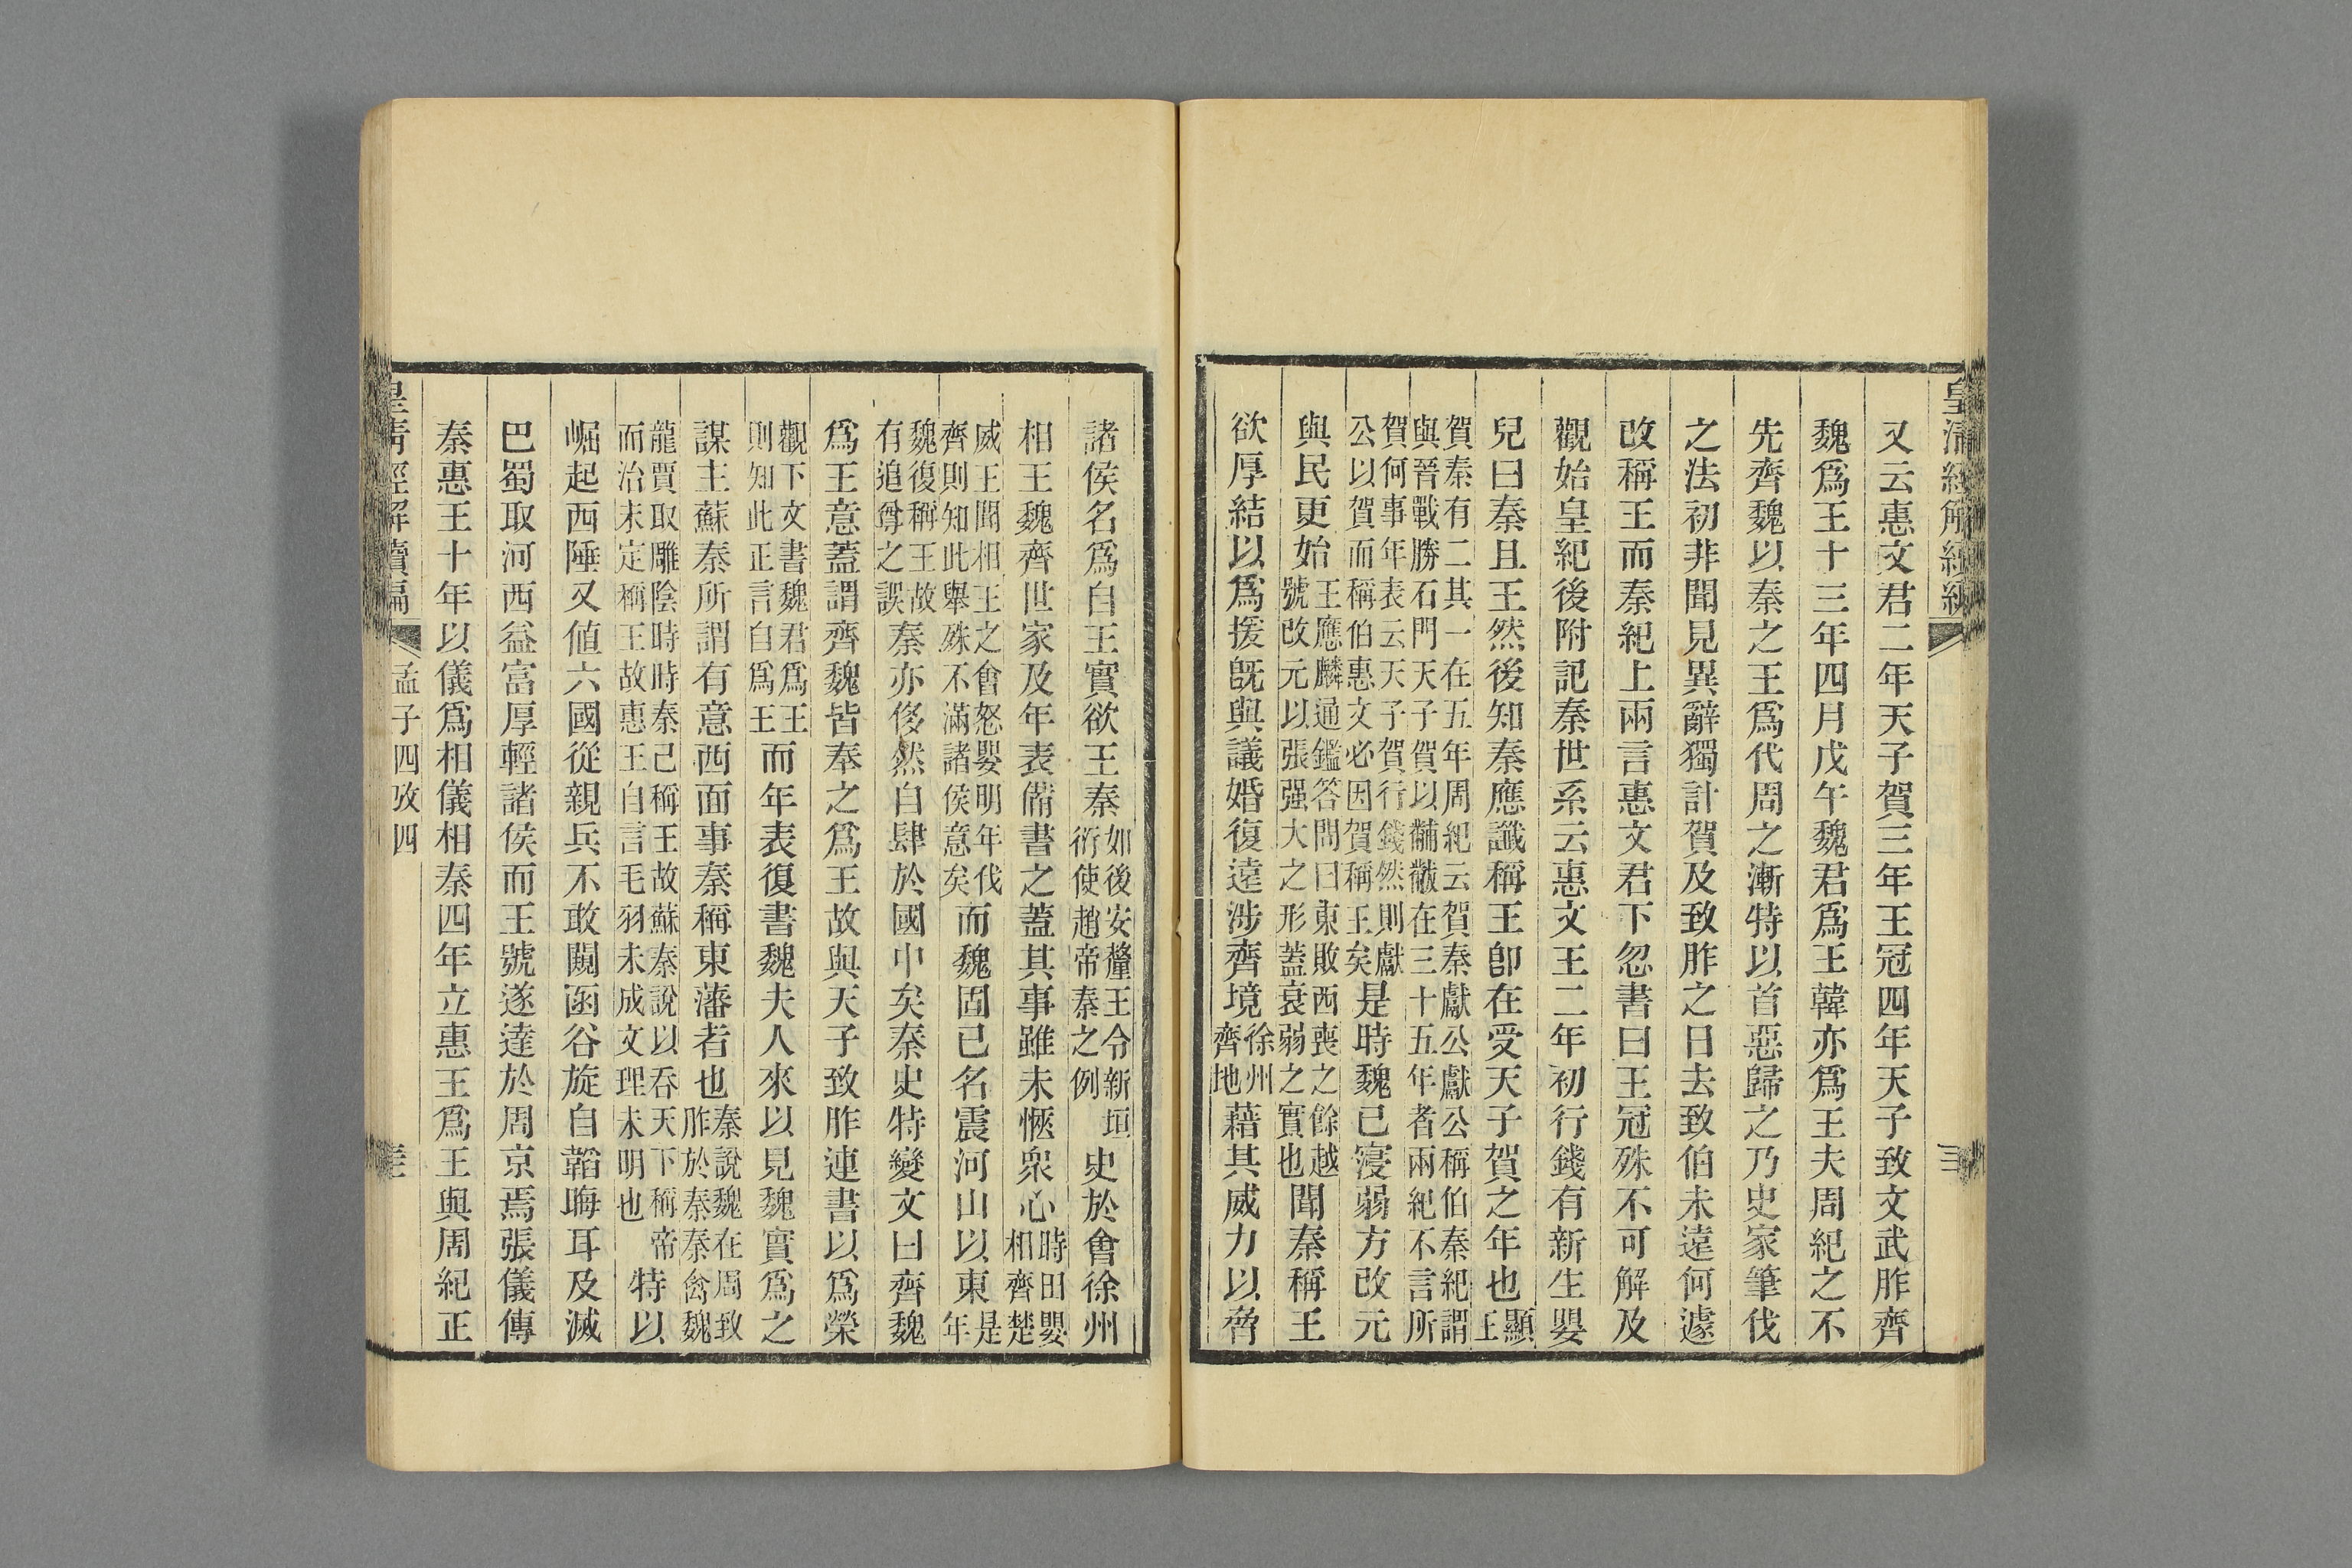 皇清經解續編
又云惠文君二年天子賀三年王冠四年天子致文武胙齊
魏爲王十三年四月戊午魏君爲王韓亦爲王夫周紀之不
先齊魏以秦之王爲代周之漸特以首惡歸之乃史家筆伐
之法初非聞見異辭獨計賀及致胙之日去致伯未遠何遽
改稱王而秦紀上兩言惠文君下忽書曰王冠殊不可解及
觀始皇紀後附記秦世系云惠文王二年初行錢有新生嬰
兒曰秦且王然後知秦應讖稱王卽在受天子賀之年也顯王
賀秦有二其一在五年周紀云賀秦獻公獻公稱伯秦紀謂
與晉戰勝石門天子賀以黼黻在三十五年者兩紀不言所
賀何事年表云天子賀行錢然則獻
公以賀而稱伯惠文必因賀稱王矣是時魏已寖弱方改元
與民更始王應麟通鑑答問曰東敗西喪之餘越
號改元以張强大之形蓋衰弱之實也聞秦稱王
欲厚結以爲援旣與議婚復遠涉齊境徐州齊地藉其威力以脅
諸侯名爲自王實欲王秦如後安釐王令新垣
衍使趙帝秦之例史於會徐州
相王魏齊世家及年表僃書之蓋其事雖未愜衆心時田嬰
相齊楚
威王聞相王之會怒嬰明年伐
齊則知此舉殊不滿諸侯意矣而魏固已名震河山以東是年
魏復稱王故
有追尊之誤秦亦侈然自肆於國中矣秦史特變文曰齊魏
爲王意蓋謂齊魏皆奉之爲王故與天子致胙連書以爲榮
觀下文書魏君爲王
則知此正言自爲王而年表復書魏夫人來以見魏實爲之
謀主蘇秦所謂有意西面事秦稱東藩者也秦說魏在周致
胙於秦秦禽魏
龍賈取雕陰時時秦已稱王故蘇秦說以吞天下稱帝
而治未定稱王故惠王自言毛羽未成文理未明也特以
崛起西陲又値六國從親兵不敢闚函谷旋自韜晦耳及滅
巴蜀取河西益富厚輕諸侯而王號遂達於周京焉張儀傳
秦惠王十年以儀爲相儀相秦四年立惠王爲王與周紀正
皇清經解續編
孟子四攷四